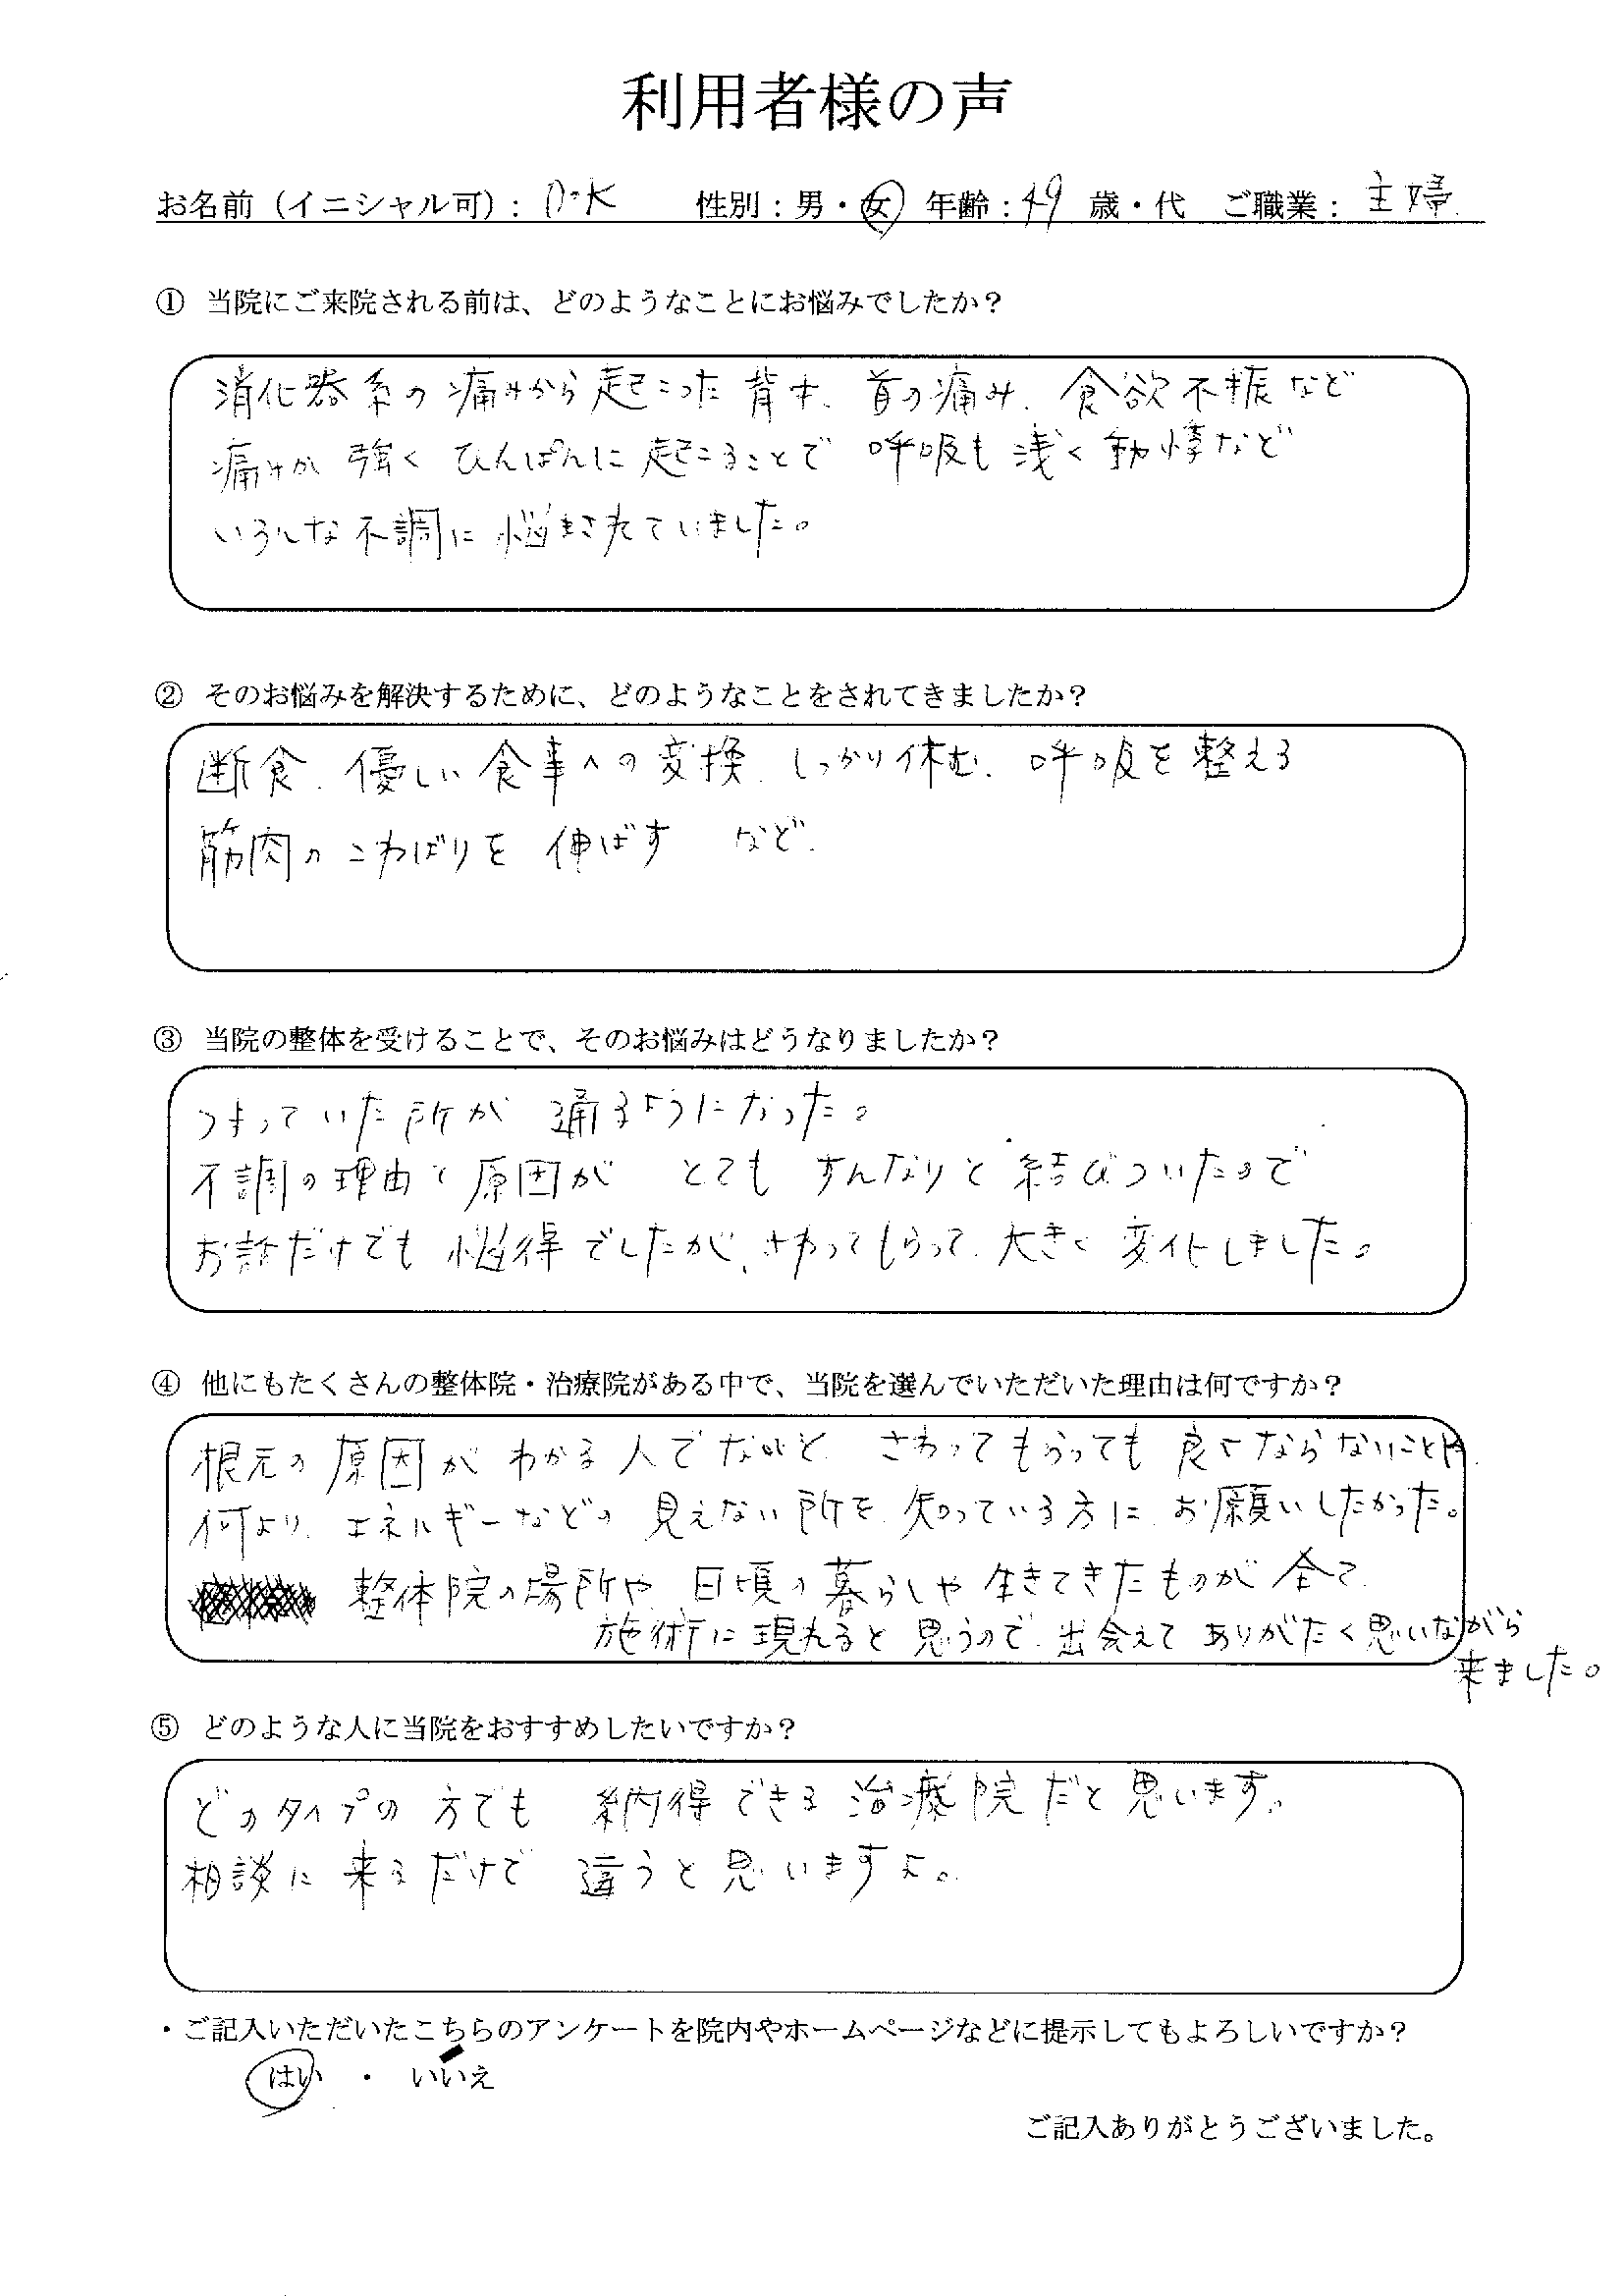 利用者様の声
お名前（イニシャル可）： 性別：男・女 年齢：49 歳・代 ご職業：主婦
① 当院にご来院される前は、どのようなことにお悩みでしたか？
消化器系の痛みから起こった背中、首の痛み、食欲不振など
痛みが強くひんぱんに起こることで呼吸も浅く動悸など
いろんな不調に悩まされていました。
② そのお悩みを解決するために、どのようなことをされてきましたか？
断食、優しい食事への変換、しっかり休む、呼吸を整える
筋肉のこわばりを伸ばす など
③ 当院の整体を受けることで、そのお悩みはどうなりましたか？
つまっていた所が通るようになった。
不調の理由と原因が とても すんなりと結びついたので
お話だけでも 得でしたが、さわってもらって、大きく変化しました。
④ 他にもたくさんの整体院・治療院がある中で、当院を選んでいただいた理由は何ですか？
根元の原因がわかる人でないと、さわってもらっても良くならないことや
何より、エネルギーなどの見えない所を知っている方にお願いしたかった。
整体院の場所や、日頃の暮らしや生きてきたものが全て、
施術に現れると思うので、出会えてありがたく思いながら
来ました。
⑤ どのような人に当院をおすすめしたいですか？
どのタイプの方でも 納得できる治療院だと思います。
相談に来るだけで 違うと思いますよ。
・ご記入いただいたこちらのアンケートを院内やホームページなどに提示してもよろしいですか？
はい ・ いいえ
ご記入ありがとうございました。